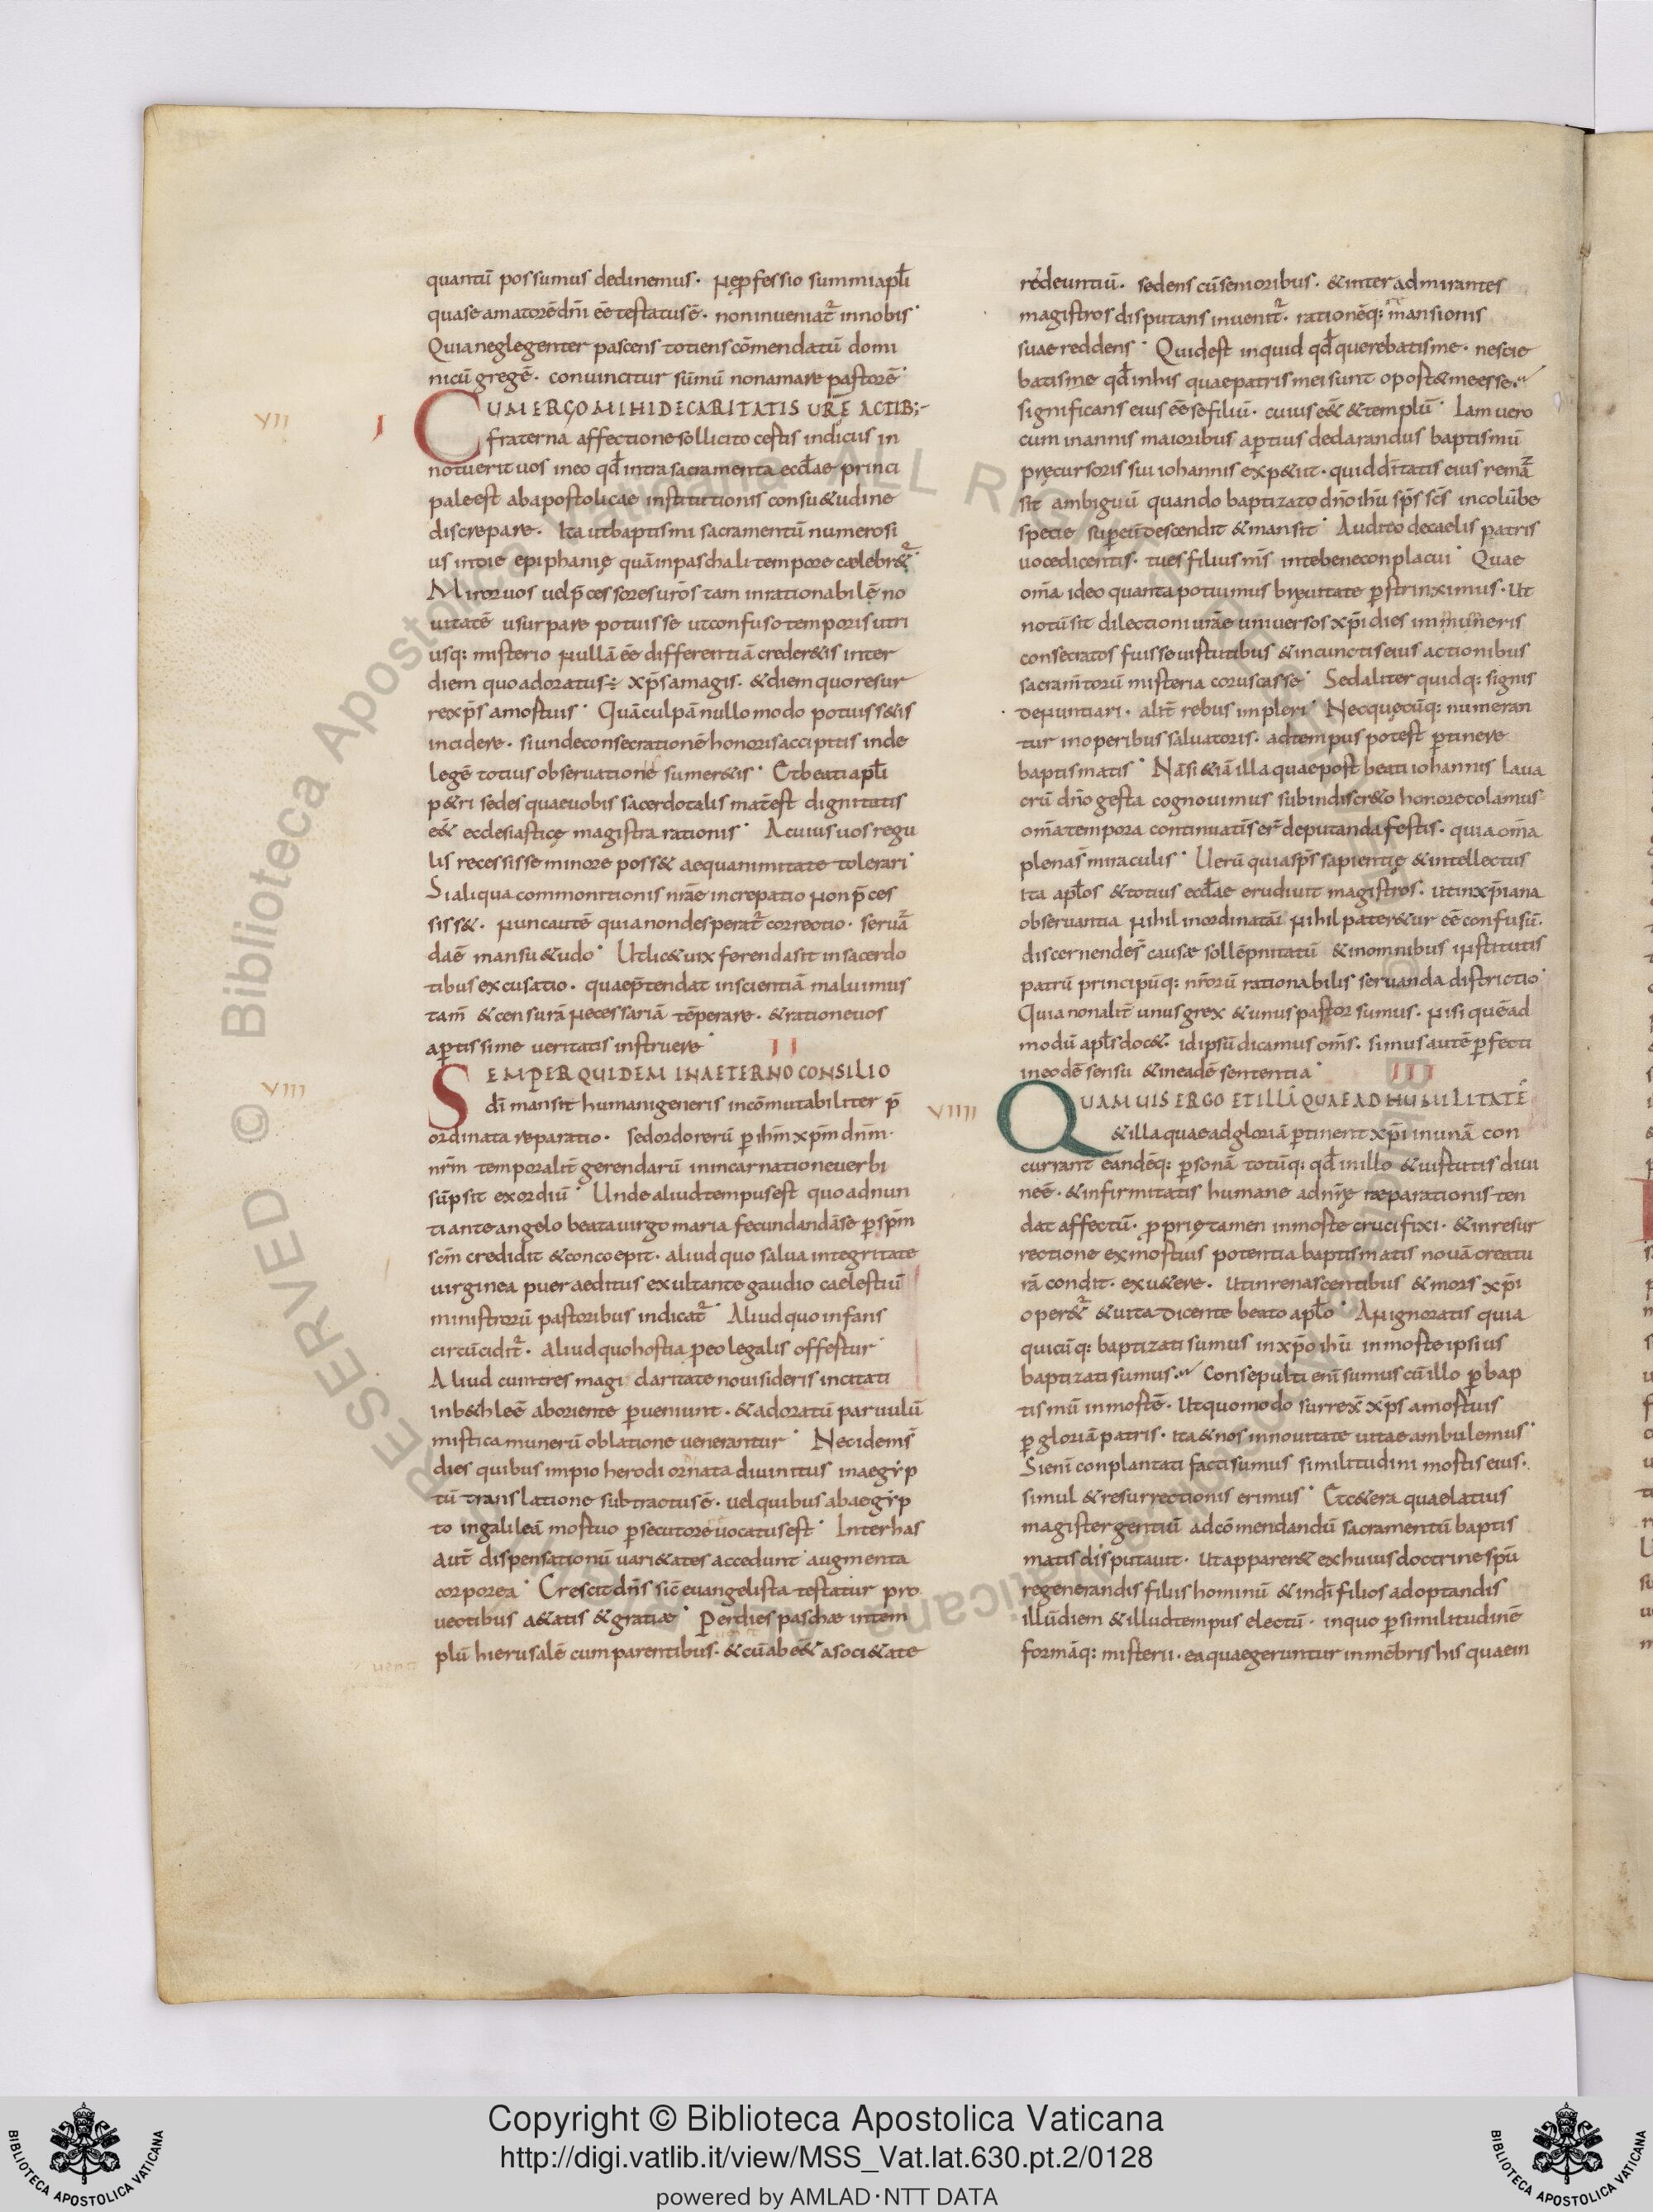 quantū possumus declinemus. ne ꝑfessio summi apłi
qua se amatorē dñi ēē testatus ē. non inueniat̃ in nobis.
Quia neglegenter pascens totiens cōmendatū domi
nicū gregē. conuincitur sūmū non amare pastorē.
VII
I
CUM ERGO MIHI DE CARITATIS URĘ ACTIB;
fraterna affectione sollicito certis indicus in
notuerit uos in eo qđ intra sacramenta eccłae princi
pale est ab apostolicae institutionis consu&udine
discrepare. Ita ut baptismi sacramentū numerosi
us in die epiphanię quā in paschali tempore cælebr&̃.
Miror uos uel p̄cessores urōs tam inrationabilē no
uitatē usurpare potuisse ut confuso temporis utri
usq: misterio nullā ēē differentiā creder&is inter
diem quo adoratus ÷ xp̄s a magis. & diem quo resur
rex xp̄s a mortuis. Quā culpā nullo modo potuiss&is
incidere. si unde consecrationē honoris accipitis inde
legē totius obseruatione sumer&is. Et beati apłi
p&ri sedes quae uobis sacerdotalis mat̄ est dignitatis
e& ecclesiasticę magistra rationis. A cuius uos regu
lis recessisse minore poss& aequanimitate tolerari.
Si aliqua commonitionis nrāe increpatio non p̄ces
siss&. nunc autē quia non desperat̃ correctio. seruā
da ē mansu&udo. Ut lic& uix ferenda sit in sacerdo
tibus excusatio. quae p̄tendat inscientiā maluimus
tam̄ & censurā necessariā tēperare. & ratione uos
aꝑtissime ueritatis instruere.
II
VIII
SEMPER QUIDEM IN AETERNO CONSILIO
dī mansit humani generis incōmutabiliter p̄
ordinata reparatio. sed ordo rerū ꝑ ihm̄ xpm̄ dnm̄.
nrm̄ temporalit̄ gerendarū in incarnatione uerbi
sūpsit exordiū. Unde aliud tempus est quo adnun
tiante angelo beata uirgo maria fecundandā se ꝑ spm̄
scm̄ credidit & concoepit. aliud quo salua integritate
uirginea puer aeditus exultante gaudio caelestiū
ministrorū pastoribus indicat̃. Aliud quo infans
circūcidit̃. Aliud quo hostia ꝑ eo legalis offertur
Aliud cum tres magi claritate noui sideris incitati
in b&hleē ab oriente ꝑueniunt. & adoratū paruulū
mistica munerū oblatione uenerantur. Nec idem s̄
dies quibus impio herodi ornata diuinitus in aegẏp
tū translatione subtractus ē. uel quibus ab aegẏp
to in galileā mortuo ꝑsecutore uocatus est. Inter has
aut̄ dispensationū uari&ates accedunt augmenta
corporea. Crescit dn̄s sic̄ euangelista testatur pro
uectibus a&atis & gratiæ. Per dies paschæ in tem
plū hierusalē cum parentibus. & cū ab e& a soci&ate
redeuntiū. sedens cū senioribus. & inter admirantes
magistros disputans inuenit̃. rationēq: mansionis
suae reddens. Quid est inquid qđ querebatis me. nescie
batis me qđ in his quae patris mei sunt oport& me esse.
significans eius ēē se filiū. cuius e& & templū. Iam uero
cum in annis maioribus aꝑtius declarandus baptismū
pręcursoris sui iohannis exp&iit. quid ditatis eius remā
sit ambiguū quando baptizato dn̄o ihū sp̄s sc̄s in colūbe
specie suꝑ eū descendit & mansit. Audito de caelis patris
uoce dicentis. tu es filius m̄s in te bene conplacui. Quae
om̄a ideo quanta potuimus breuitate ꝑstrinximus. Ut
notū sit dilectioni urāe uniuersos xp̄i dies innumeris
consecratos fuisse uirtutibus & in cunctis eius actionibus
sacram̄torū misteria coruscasse. Sed aliter quidq: signis
denuntiari. alit̄ rebus impleri. Nec quęcūq: numeran
tur in operibus saluatoris. ad tempus potest ꝑtinere
baptismatis. Nā si &iā illa quae post beati iohannis laua
crū dn̄o gesta cognouimus sub indiscr&o honore colamus
om̄a tempora continuatis er̄ deputanda festis. quia om̄a
plena s̄ miraculis. Uerū quia sp̄s sapientię & intellectus
ita apłos & totius eccłae erudiuit magistros. ut in xp̄iana
obseruantia nihil inordinatū nihil pater&ur ēē confusū.
discernende s̄ causæ sollēpnitatū & in omnibus institutis
patrū principūq: nr̄orū rationabilis seruanda districtio.
Quia non alit̄ unus grex & unus pastor sumus. nisi quēad
modū apłs doc&. id ipsū dicamus om̄s. simus autē ꝑfecti
in eodē sensu & in eadē sententia.
III
VIIII
QUAMUIS ERGO ET ILLA QUAE AD HUMILITATĒ
& illa quae ad gloriā ꝑtinent xp̄i in unā con
currant eandēq: ꝑsonā totūq: qđ in illo & uirtutis diui
nę ē. & infirmitatis humane ad nrę ræparationis ten
dat affectū. ꝓprię tamen in morte crucifixi. & in resur
rectione ex mortuis potentia baptismatis nouā creatu
rā condit. ex u&ere. ut in renascentibus & mors xp̄i
oper&̃ & uita dicente beato apło. An ignoratis quia
quicūq: baptizati sumus in xp̄o ihū in morte ipsius
baptizati sumus. Consepulti enī sumus cū illo ꝑ bap
tismū in mortē. Ut quomodo surrex̄ xp̄s a mortuis
ꝑ gloriā patris. ita & nos in nouitate uitae ambulemus.
Si enī conplantati facti sumus similitudini mortis eius.
simul & resurrectionis erimus. Et c&era quae latius
magister gentiū ad cōmendandū sacramentū baptis
matis disputauit. Ut apparer& ex huius doctrine spū
regenerandis filiis hominū & in dī filios adoptandis
illū diem & illud tempus electū. in quo ꝑ similitudinē
formāq: misterii. ea quae geruntur in mēbris his quae in
Copyright © Biblioteca Apostolica Vaticana
http://digi.vatlib.it/view/MSS_Vat.lat.630.pt.2/0128
powered by AMLAD·NTT DATA
BIBLIOTECA APOSTOLICA VATICANA
BIBLIOTECA APOSTOLICA VATICANA